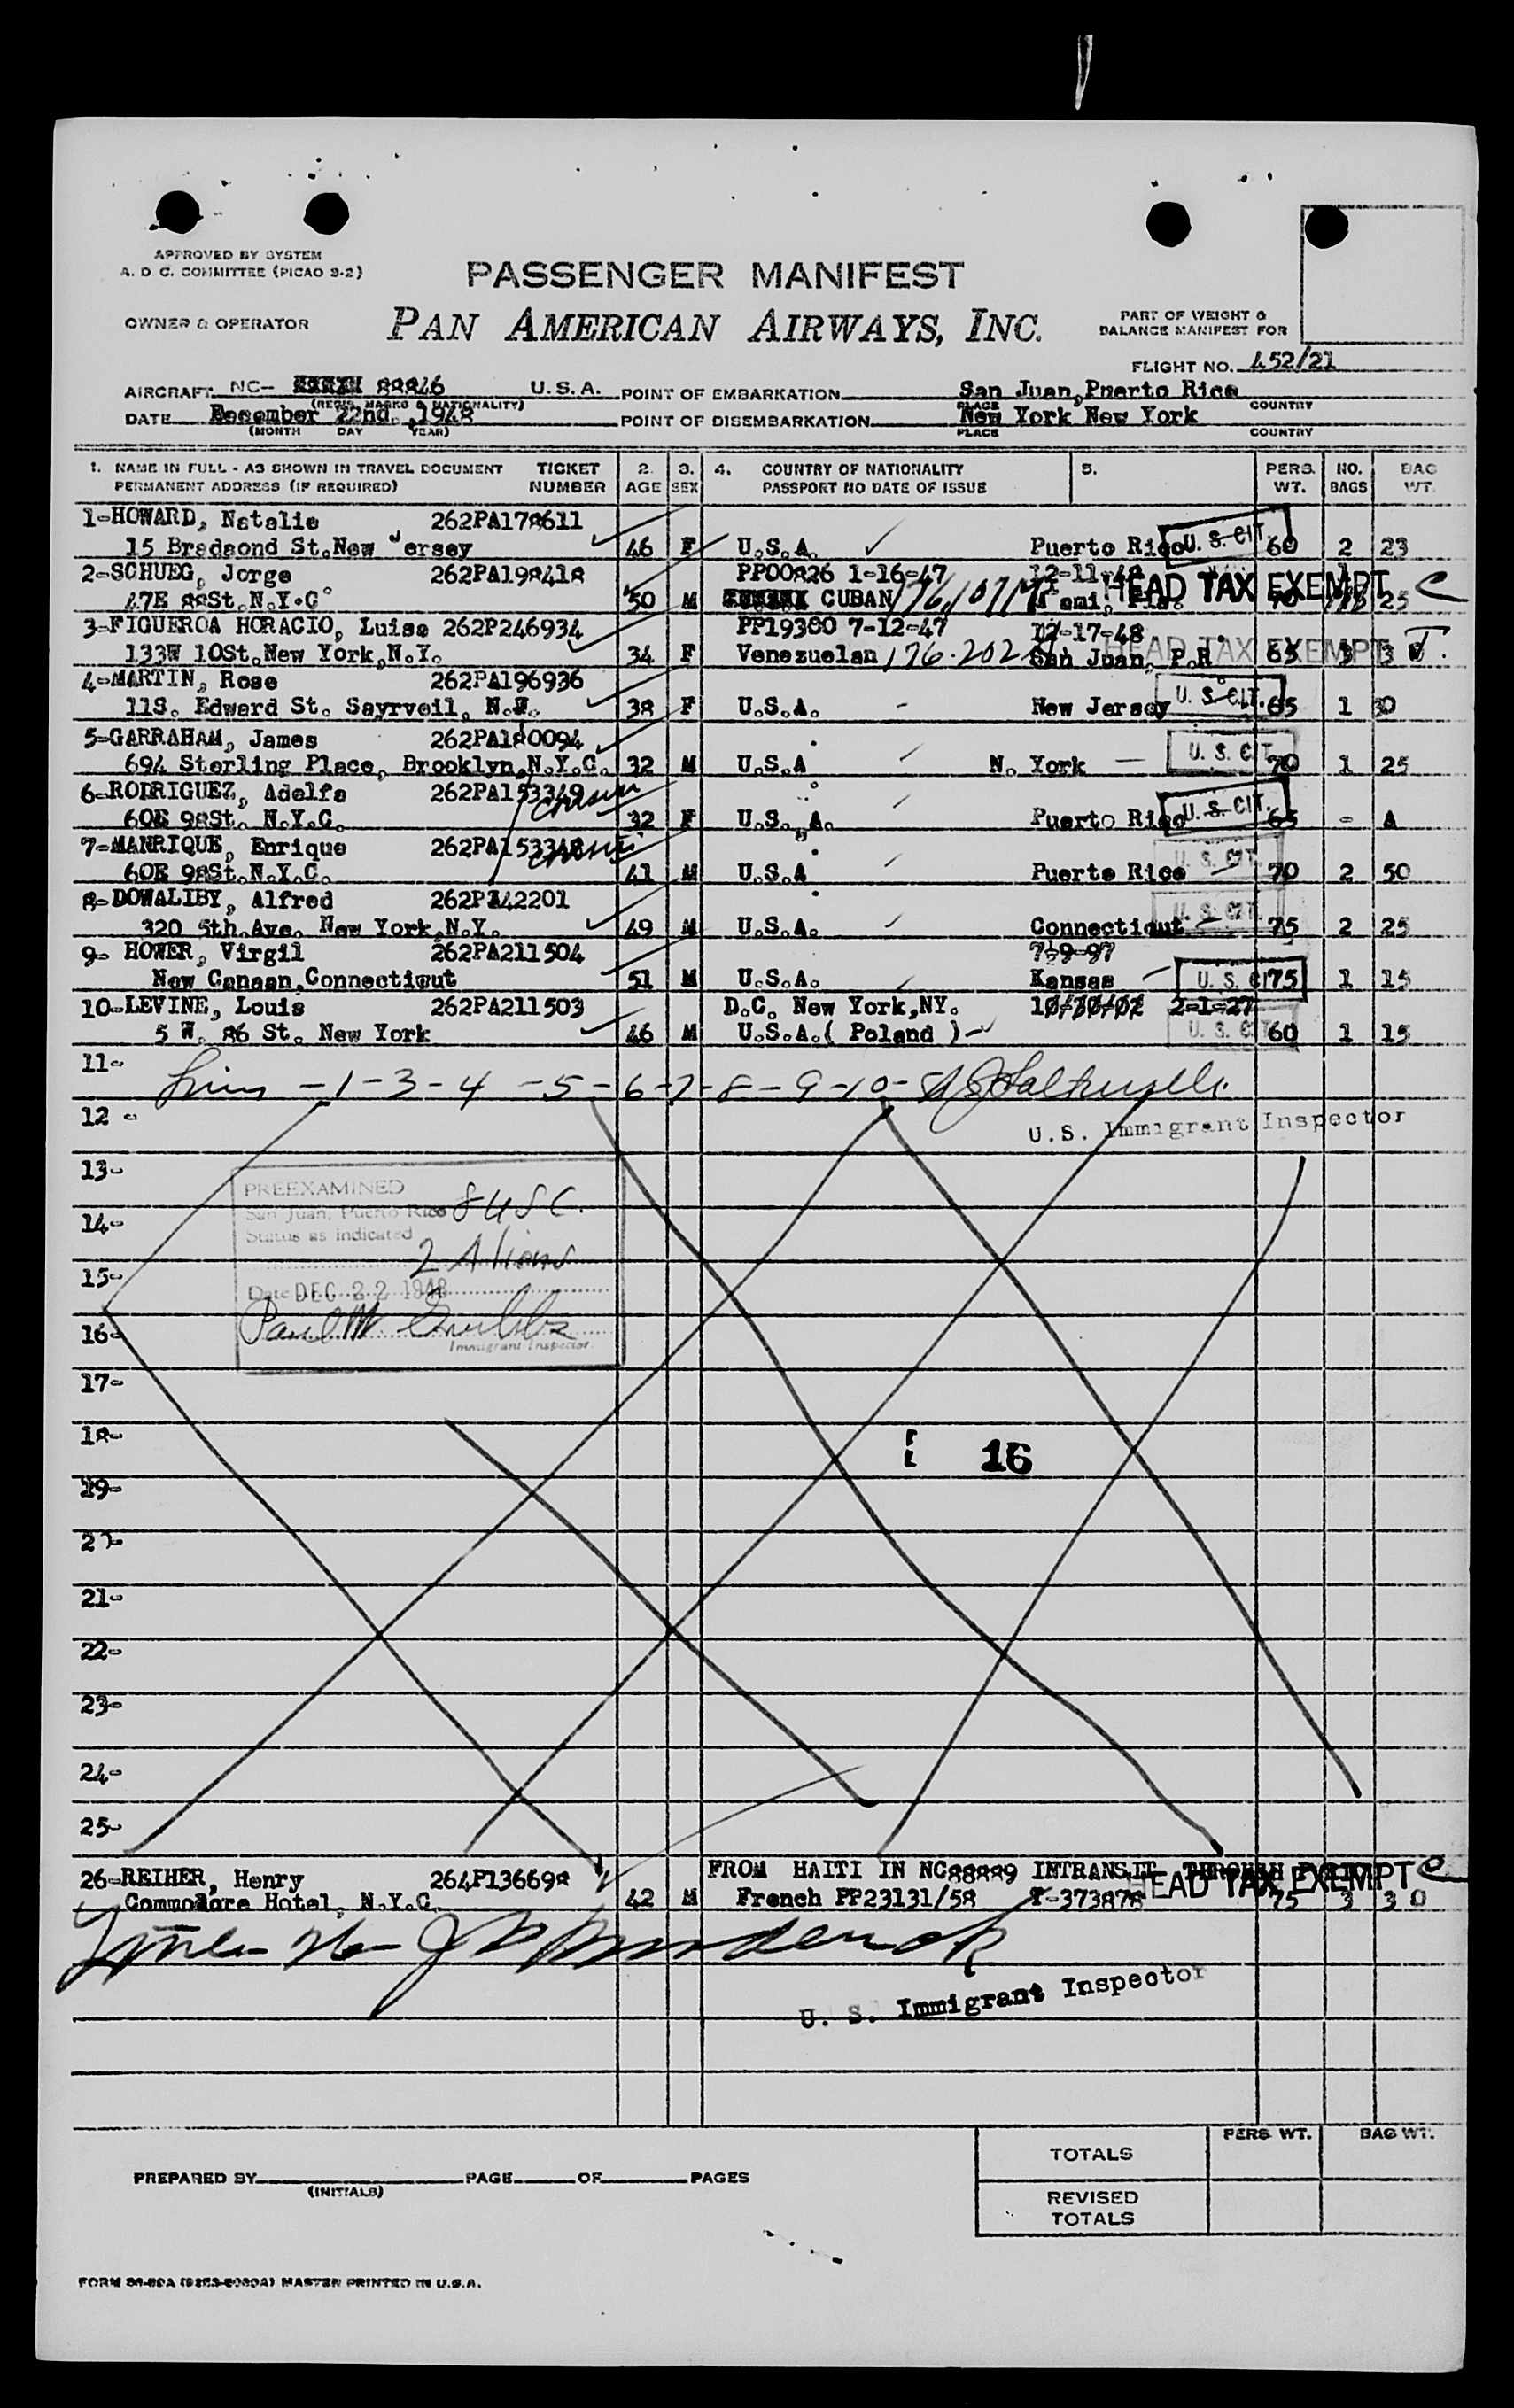 APPROVED BY SYSTEM
A. D C. COMMITTEE (PICAO 9-2)
PASSENGER MANIFEST
OWNER & OPERATOR
PAN AMERICAN AIRWAYS, INC.
PART OF WEIGHT &
BALANCE MANIFEST FOR
FLIGHT NO. 452/21
AIRCRAFT NC- 88846 U.S.A. POINT OF EMBARKATION San Juan, Puerto Rico
(REGIS. MARKS & NATIONALITY) PLACE COUNTRY
DATE December 22nd. ,1948 POINT OF DISEMBARKATION New York New York
(MONTH DAY YEAR) PLACE COUNTRY
1. NAME IN FULL - AS SHOWN IN TRAVEL DOCUMENT TICKET 2. 3. 4. COUNTRY OF NATIONALITY 5. PERS. NO. BAG
PERMANENT ADDRESS (IF REQUIRED) NUMBER AGE SEX PASSPORT NO DATE OF ISSUE WT. BAGS WT.
1-HOWARD, Natalie 262PA178611
15 Bredsond St.New Jersey 46 F U.S.A. Puerto Rico U. S. CIT. 60 2 23
2-SCHUEG, Jorge 262PA198418 PP00826 1-16-47 12-11-48
47E 88St.N.Y.C 50 M CUBAN HEAD TAX EXEMPT C 70 25
3-FIGUEROA HORACIO, Luisa 262P246934 PP19380 7-12-47 12-17-48
133W 10St.New York,N.Y. 34 F Venezuelan 176.202 San Juan, P.R HEAD TAX EXEMPT 65 3
4-MARTIN, Rose 262PA196936
11S. Edward St. Sayrveil, N.J. 38 F U.S.A. New Jersey U. S. CIT. 65 1 30
5-GARRAHAM, James 262PA180094
694 Sterling Place, Brooklyn,N.Y.C. 32 M U.S.A N. York U. S. CIT 70 1 25
6-RODRIGUEZ, Adelfa 262PA153349
60E 98St. N.Y.C. 32 F U.S. A. Puerto Rico U. S. CIT. 65 - A
7-MANRIQUE, Enrique 262PA153348
60E 98St.N.Y.C. 41 M U.S.A Puerto Rico U. S. CIT. 70 2 50
8-DOWALIBY, Alfred 262PA42201
320 5th.Ave. New York,N.Y. 49 M U.S.A. Connecticut U. S. CIT. 75 2 25
9- HOWER, Virgil 262PA211504 7-9-97
New Canaan,Connecticut 51 M U.S.A. Kansas U. S. CIT 75 1 15
10-LEVINE, Louis 262PA211503 D.C. New York,NY. 2-1-27
5 W. 86 St. New York 46 M U.S.A.( Poland ) U. S. CIT. 60 1 15
11- -1-3-4-5-6-7-8-9-10-
12 - U.S. Immigrant Inspector
13-
PREEXAMINED
San Juan, Puerto Rico 8 USC.
14-
Status as indicated
2 Aliens
15-
Date DEC 22 1948
16- Paul W Grubbs
Immigrant Inspector.
17-
18- 16
19-
20-
21-
22-
23-
24-
25-
26-REIHER, Henry 264P136698 FROM HAITI IN NC88889 INTRANSIT THROUGH HEAD TAX EXEMPT C
Commodore Hotel, N.Y.C. 42 M French PP23131/58 T-373878 75 3 30
U. S. Immigrant Inspector
PERS WT. BAG WT.
TOTALS
PREPARED BY PAGE OF PAGES
(INITIALS)
REVISED
TOTALS
MASTER PRINTED IN U.S.A.